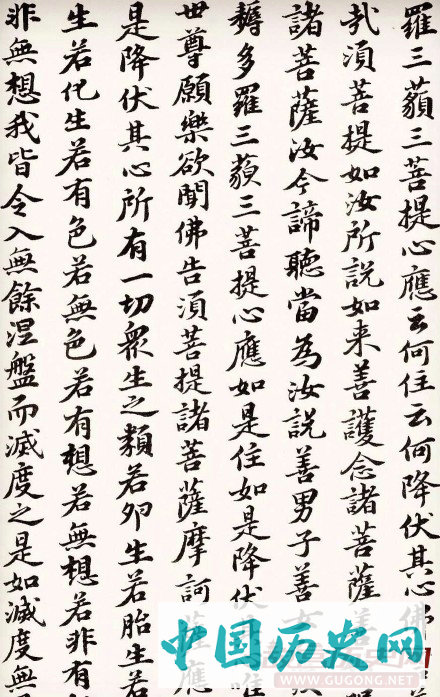 羅三藐三菩提心應云何住云何降伏其心佛
哉須菩提如汝所説如来善護念諸菩薩善
諸菩薩汝今諦聽當為汝説善男子善
耨多羅三藐三菩提心應如是住如是降伏
世尊願樂欲聞佛告須菩提諸菩薩摩訶薩應
是降伏其心所有一切眾生之類若卵生若胎生若
生若化生若有色若無色若有想若無想若非有
非無想我皆令入無餘涅盤而滅度之是如滅度無
中国历史网
WWW.GUGONG.NET